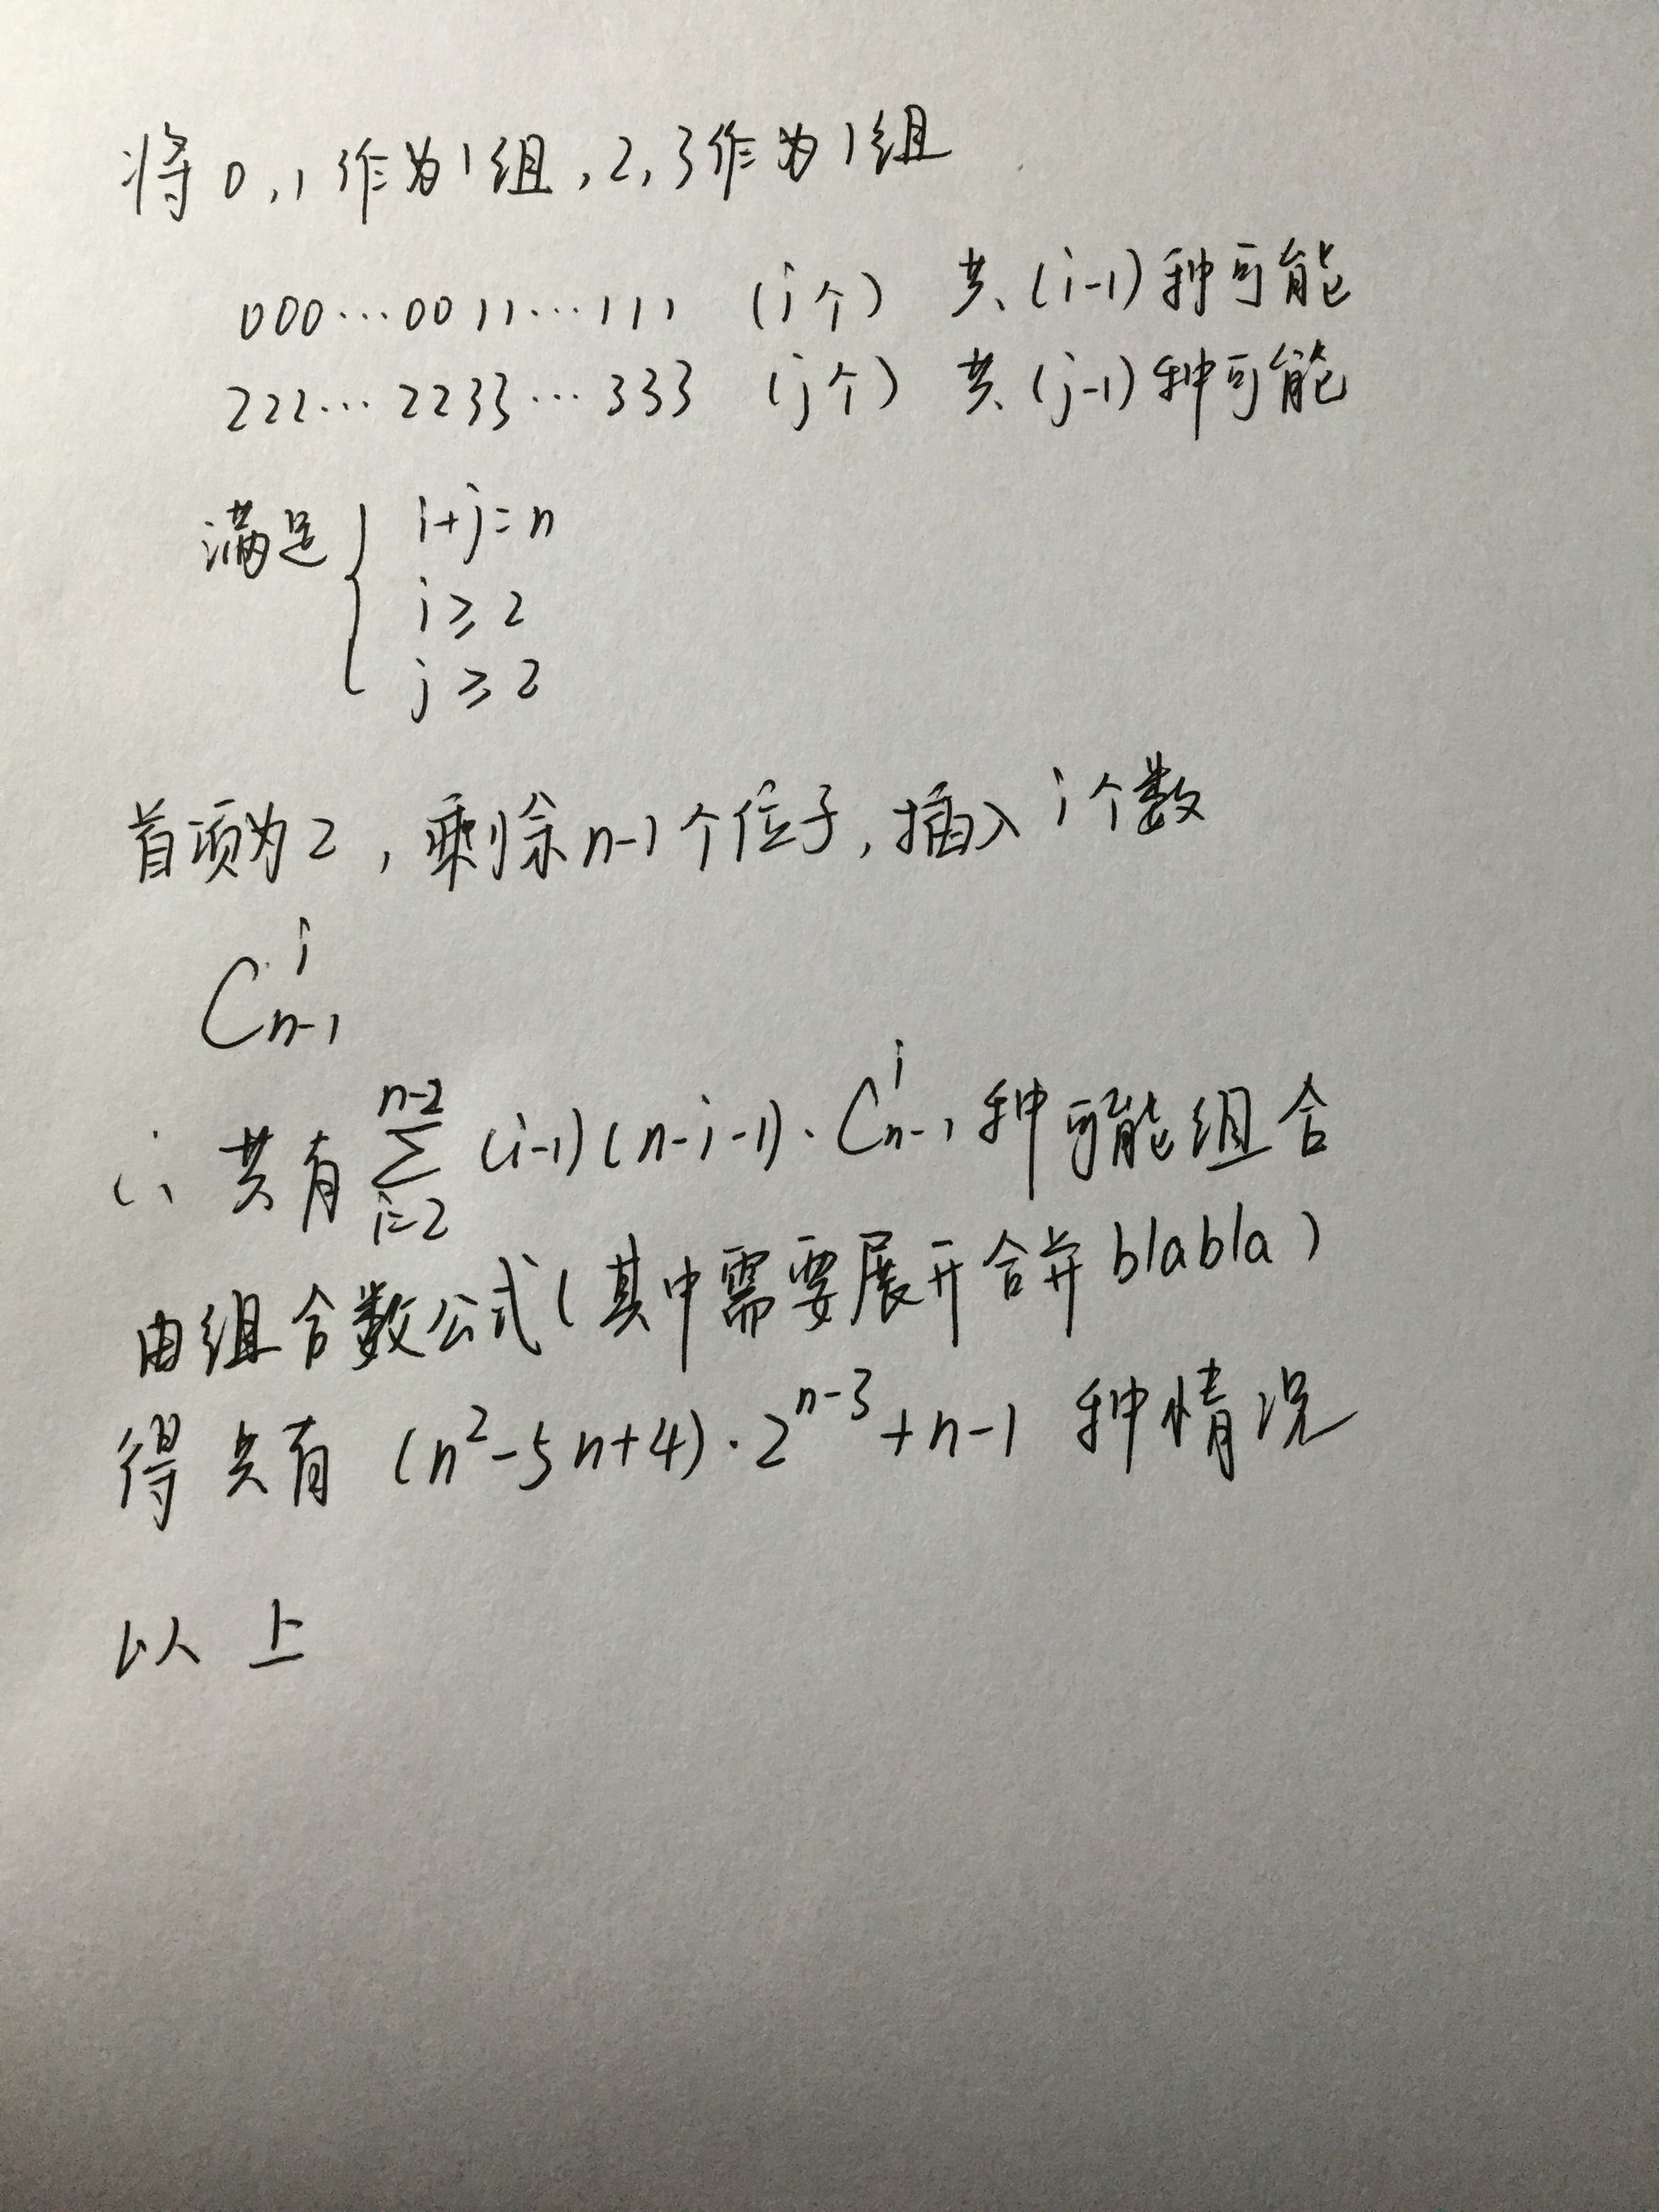 将0,1作为1组,2,3作为1组
000…0011…111 (i个) 共(i-1)种可能
222…2233…333 (j个) 共(j-1)种可能
满足 { i+j=n
i≥2
j≥2
首项为2,剩余n-1个位子,插入i个数
C_{n-1}^{i}
∴共有 \sum_{i=2}^{n-2} (i-1)(n-i-1)·C_{n-1}^{i} 种可能组合
由组合数公式(其中需要展开合并blabla)
得共有 (n²-5n+4)·2^{n-3}+n-1 种情况
以上